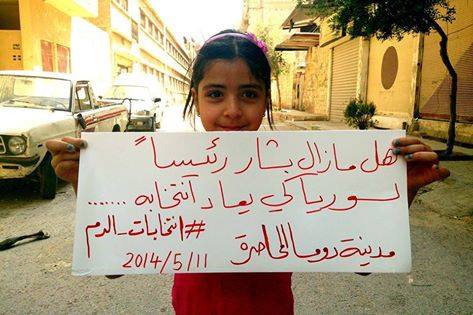 هل مازال بشار رئيساً
لسوريا كي يعاد انتخابه .......
#انتخابات_الدم
مدينة دوما المحاصرة
2014/5/11